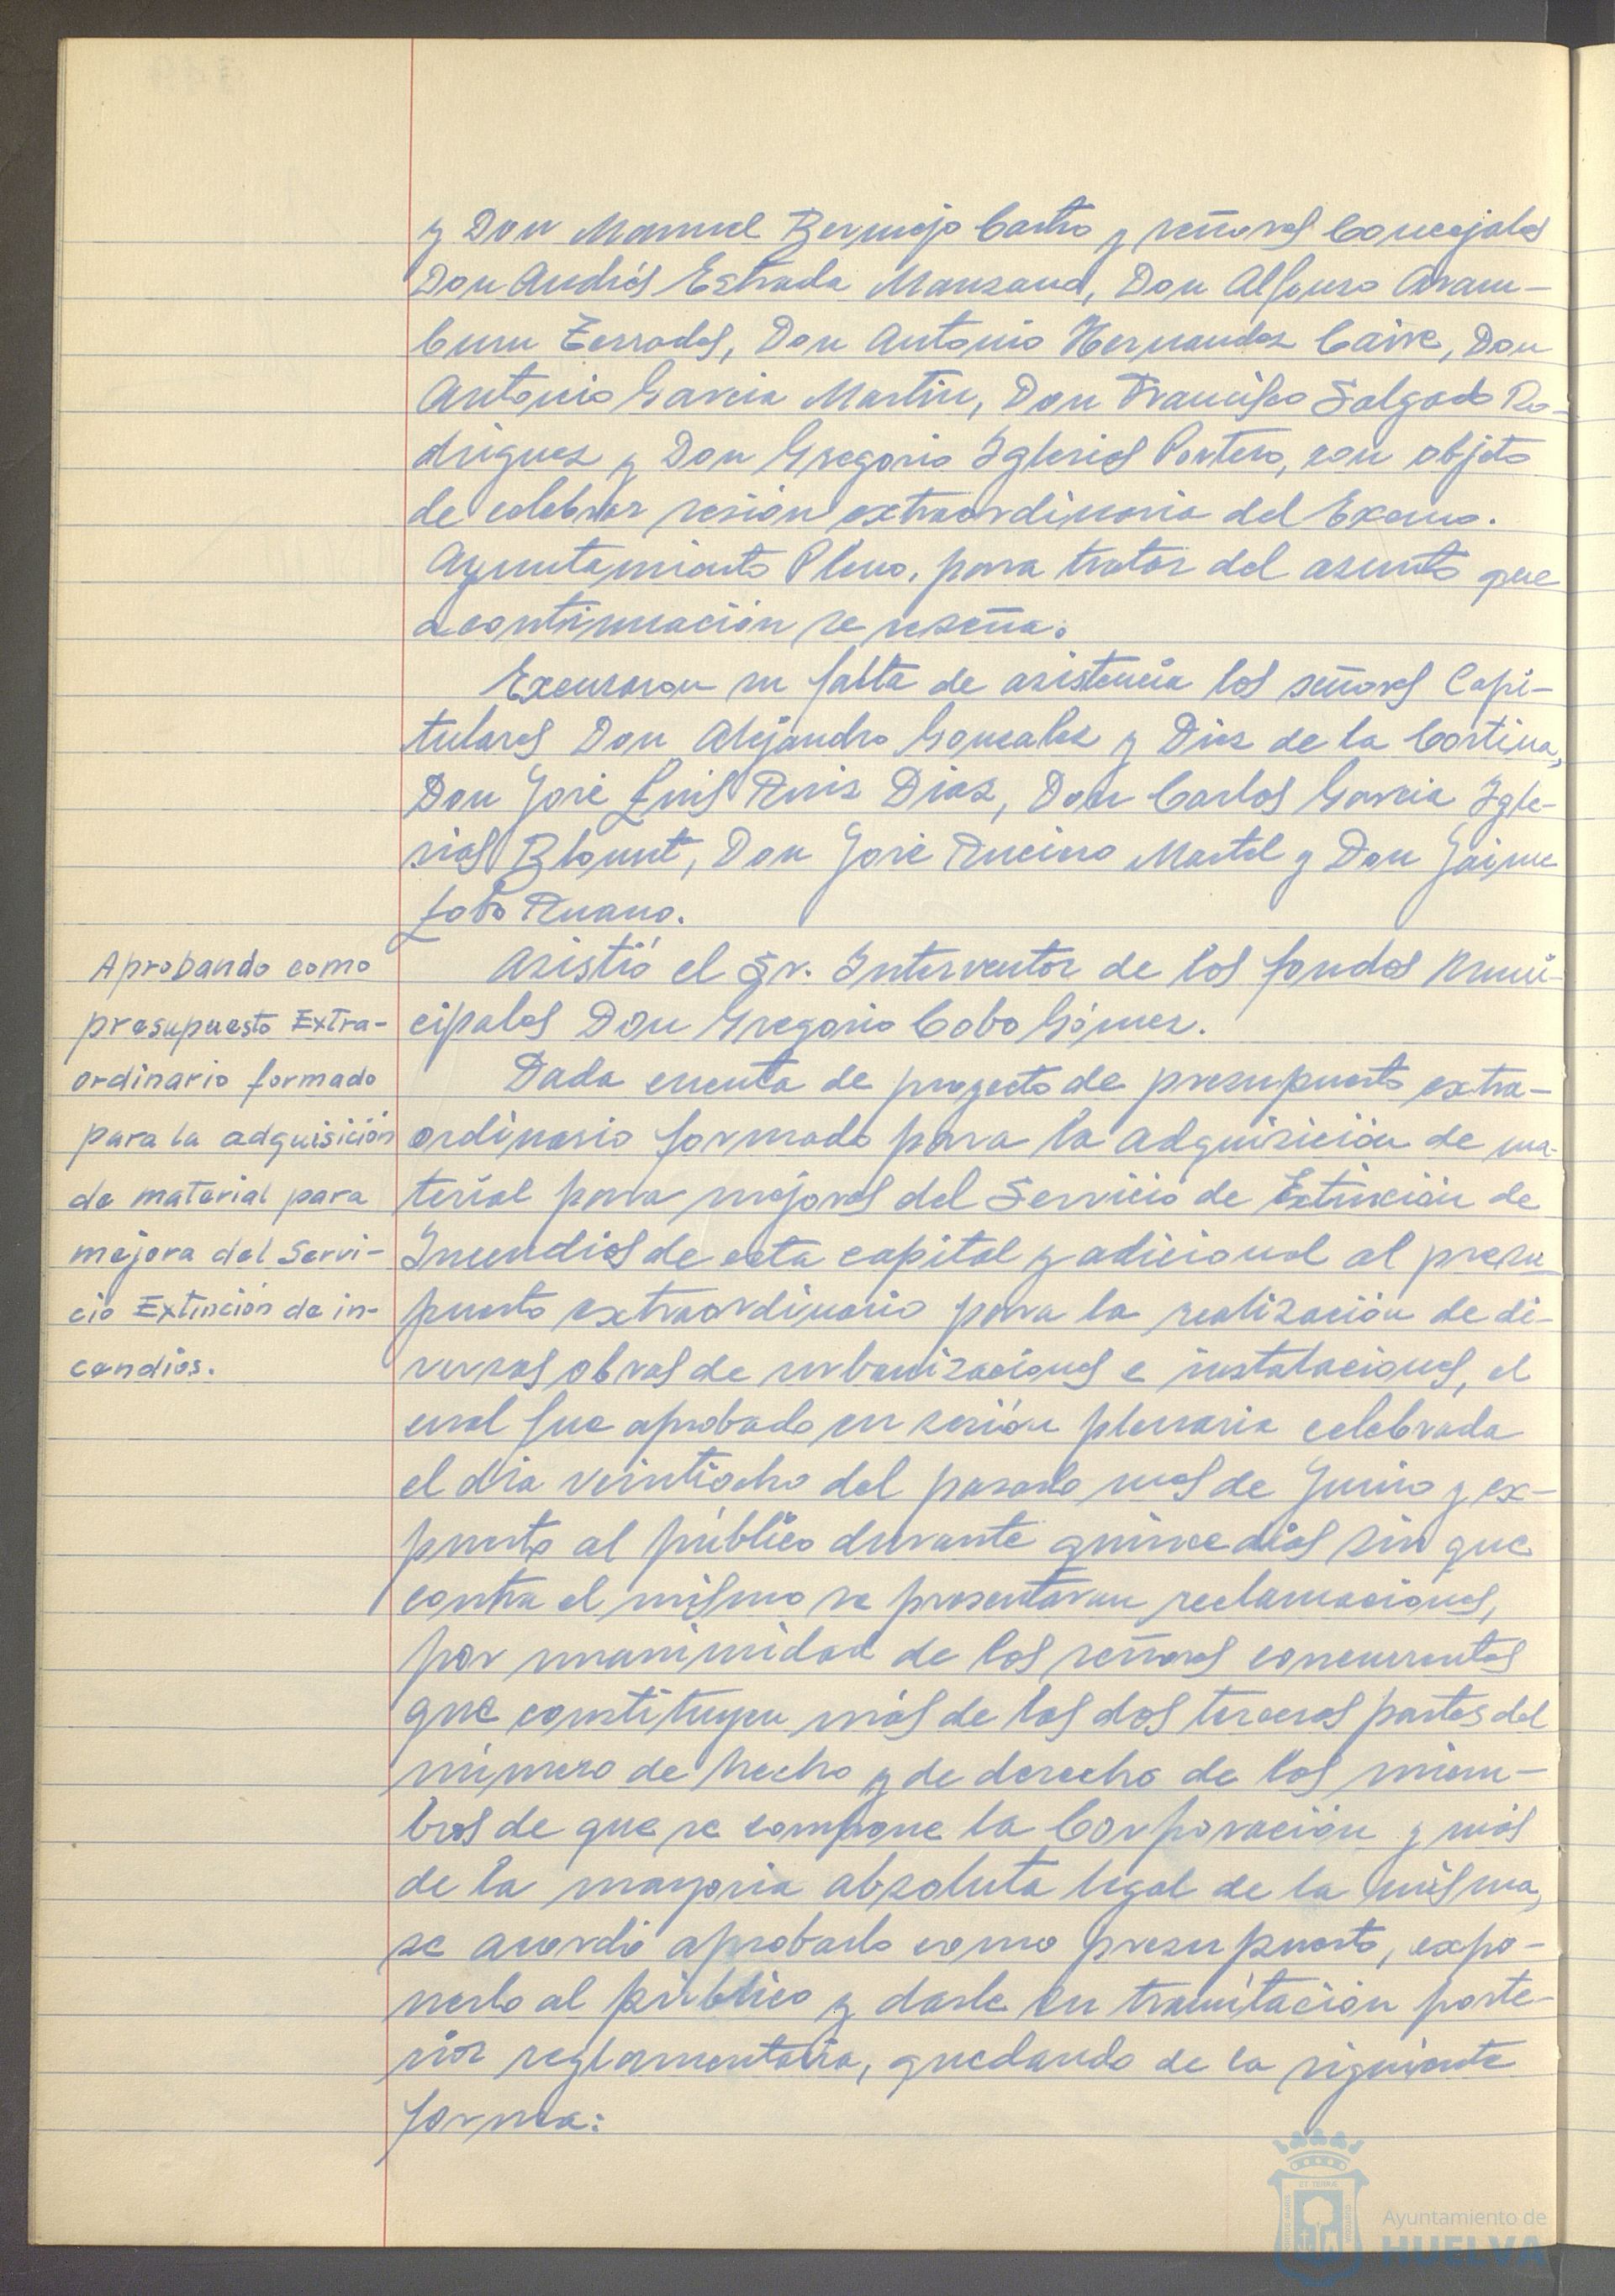 y Don Manuel Bermejo Castro y señores Concejales
Don Andrés Estrada Manzano, Don Alfonso Aram-
buru Terrades, Don Antonio Hernandez Caire, Don
Antonio Garcia Martin, Don Francisco Salgado Ro-
driguez y Don Gregorio Iglesias Portero, con objeto
de celebrar sesión extraordinaria del Excmo.
Ayuntamiento Pleno, para tratar del asunto que
a continuación se reseña.
Excusaron su falta de asistencia los señores Capi-
tulares Don Alejandro Gonzalez y Diez de la Cortina,
Don José Luis Ruiz Diaz, Don Carlos Garcia Igle-
sias Blount, Don José Ruciero Martel y Don Jaime
Lobo Ruano.
Asistió el Sr. Interventor de los fondos Muni-
cipales Don Gregorio Cobo Gómez.
Aprobando como
presupuesto Extra-
ordinario formado
para la adquisición
de material para
mejora del Servi-
cio Extinción de in-
cendios.
Dada cuenta de proyecto de presupuesto extra-
ordinario formado para la adquisición de ma-
terial para mejoras del Servicio de Extinción de
Incendios de esta capital y adicional al presu-
puesto extraordinario para la realización de di-
versas obras de urbanizaciones e instalaciones, el
cual fue aprobado en sesión plenaria celebrada
el dia veintiocho del pasado mes de Junio y ex-
puesto al público durante quince dias sin que
contra el mismo se presentaran reclamaciones,
por unanimidad de los señores concurrentes
que constituyen más de las dos terceras partes del
número de hecho y de derecho de los miem-
bros de que se compone la Corporación y más
de la mayoria absoluta legal de la misma,
se acordó aprobarlo como presupuesto, expo-
nerlo al público y darle su tramitación poste-
rior reglamentaria, quedando de la siguiente
forma:
Ayuntamiento de
HUELVA